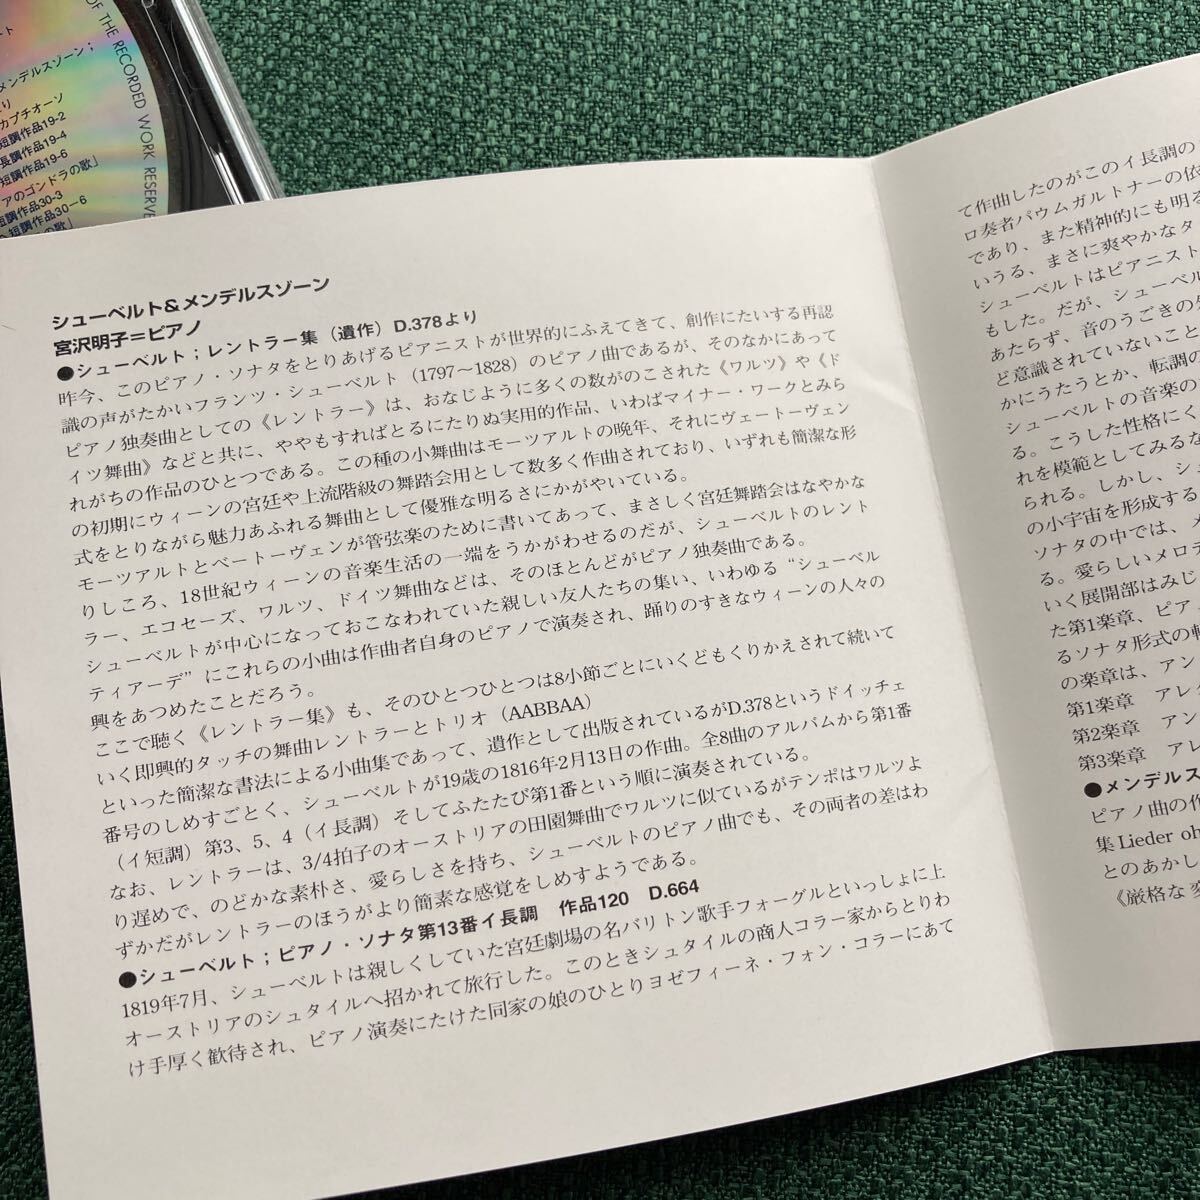 OF THE RECORDED WORK RESERVE
メンデルスゾーン；
カプチオーソ
短調作品19-2
長調作品19-4
短調作品19-6
アのゴンドラの歌」
短調作品30-3
短調作品30-6
の歌」
シューベルト&メンデルスゾーン
宮沢明子＝ピアノ
●シューベルト；レントラー集（遺作）D.378より
昨今、このピアノ・ソナタをとりあげるピアニストが世界的にふえてきて、創作にたいする再認
識の声がたかいフランツ・シューベルト（1797〜1828）のピアノ曲であるが、そのなかにあって
ピアノ独奏曲としての《レントラー》は、おなじように多くの数がのこされた《ワルツ》や《ド
イツ舞曲》などと共に、ややもすればとるにたりぬ実用的作品、いわばマイナー・ワークとみら
れがちの作品のひとつである。この種の小舞曲はモーツアルトの晩年、それにヴェートーヴェン
の初期にウィーンの宮廷や上流階級の舞踏会用として数多く作曲されており、いずれも簡潔な形
式をとりながら魅力あふれる舞曲として優雅な明るさにかがやいている。
モーツアルトとベートーヴェンが管弦楽のために書いてあって、まさしく宮廷舞踏会はなやかな
りしころ、18世紀ウィーンの音楽生活の一端をうかがわせるのだが、シューベルトのレント
ラー、エコセーズ、ワルツ、ドイツ舞曲などは、そのほとんどがピアノ独奏曲である。
シューベルトが中心になっておこなわれていた親しい友人たちの集い、いわゆる“シューベル
ティアーデ”にこれらの小曲は作曲者自身のピアノで演奏され、踊りのすきなウィーンの人々の
興をあつめたことだろう。
ここで聴く《レントラー集》も、そのひとつひとつは8小節ごとにいくどもくりかえされて続いて
いく即興的タッチの舞曲レントラーとトリオ（AABBAA）
といった簡潔な書法による小曲集であって、遺作として出版されているがD.378というドイッチェ
番号のしめすごとく、シューベルトが19歳の1816年2月13日の作曲。全8曲のアルバムから第1番
（イ短調）第3、5、4（イ長調）そしてふたたび第1番という順に演奏されている。
なお、レントラーは、3/4拍子のオーストリアの田園舞曲でワルツに似ているがテンポはワルツよ
り遅めで、のどかな素朴さ、愛らしさを持ち、シューベルトのピアノ曲でも、その両者の差はわ
ずかだがレントラーのほうがより簡素な感覚をしめすようである。
●シューベルト；ピアノ・ソナタ第13番イ長調　作品120　D.664
1819年7月、シューベルトは親しくしていた宮廷劇場の名バリトン歌手フォーグルといっしょに上
オーストリアのシュタイルへ招かれて旅行した。このときシュタイルの商人コラー家からとりわ
け手厚く歓待され、ピアノ演奏にたけた同家の娘のひとりヨゼフィーネ・フォン・コラーにあて
て作曲したのがこのイ長調の
ロ奏者パウムガルトナーの依
であり、また精神的にも明る
いうる、まさに爽やかなタ
シューベルトはピアニスト
もした。だが、シューベル
あたらず、音のうごきの
ど意識されていないこと
かにうたうとか、転調の
シューベルトの音楽の
る。こうした性格にく
れを模範としてみるな
られる。しかし、シュ
の小宇宙を形成する
ソナタの中では、
る。愛らしいメロデ
いく展開部はみじ
た第1楽章、ピア
るソナタ形式の
の楽章は、アン
第1楽章　アレ
第2楽章　アン
第3楽章　アレ
●メンデルス
ピアノ曲の作
集Lieder oh
とのあかし
《厳格な変